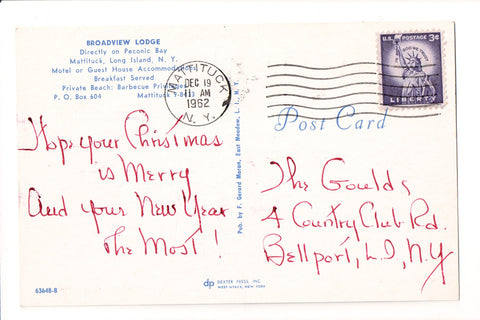 BROADVIEW LODGE
Directly on Peconic Bay
Mattituck, Long Island, N. Y.
Motel or Guest House Accommodations
Breakfast Served
Private Beach: Barbecue Privileges
P. O. Box 604 Mattituck
MATTITUCK
DEC 19
11 AM
1962
N. Y.
U.S. POSTAGE 3¢
IN GOD WE TRUST
LIBERTY
Post Card
Hope your Christmas
is Merry
And your New Year
The Most!
Pub. by F. Gerard Moran, East Meadow, L. I., N. Y.
The Goulds
4 Country Club Rd.
Bellport, L.I, N.Y
63648-B
dp DEXTER PRESS, INC.
WEST NYACK, NEW YORK